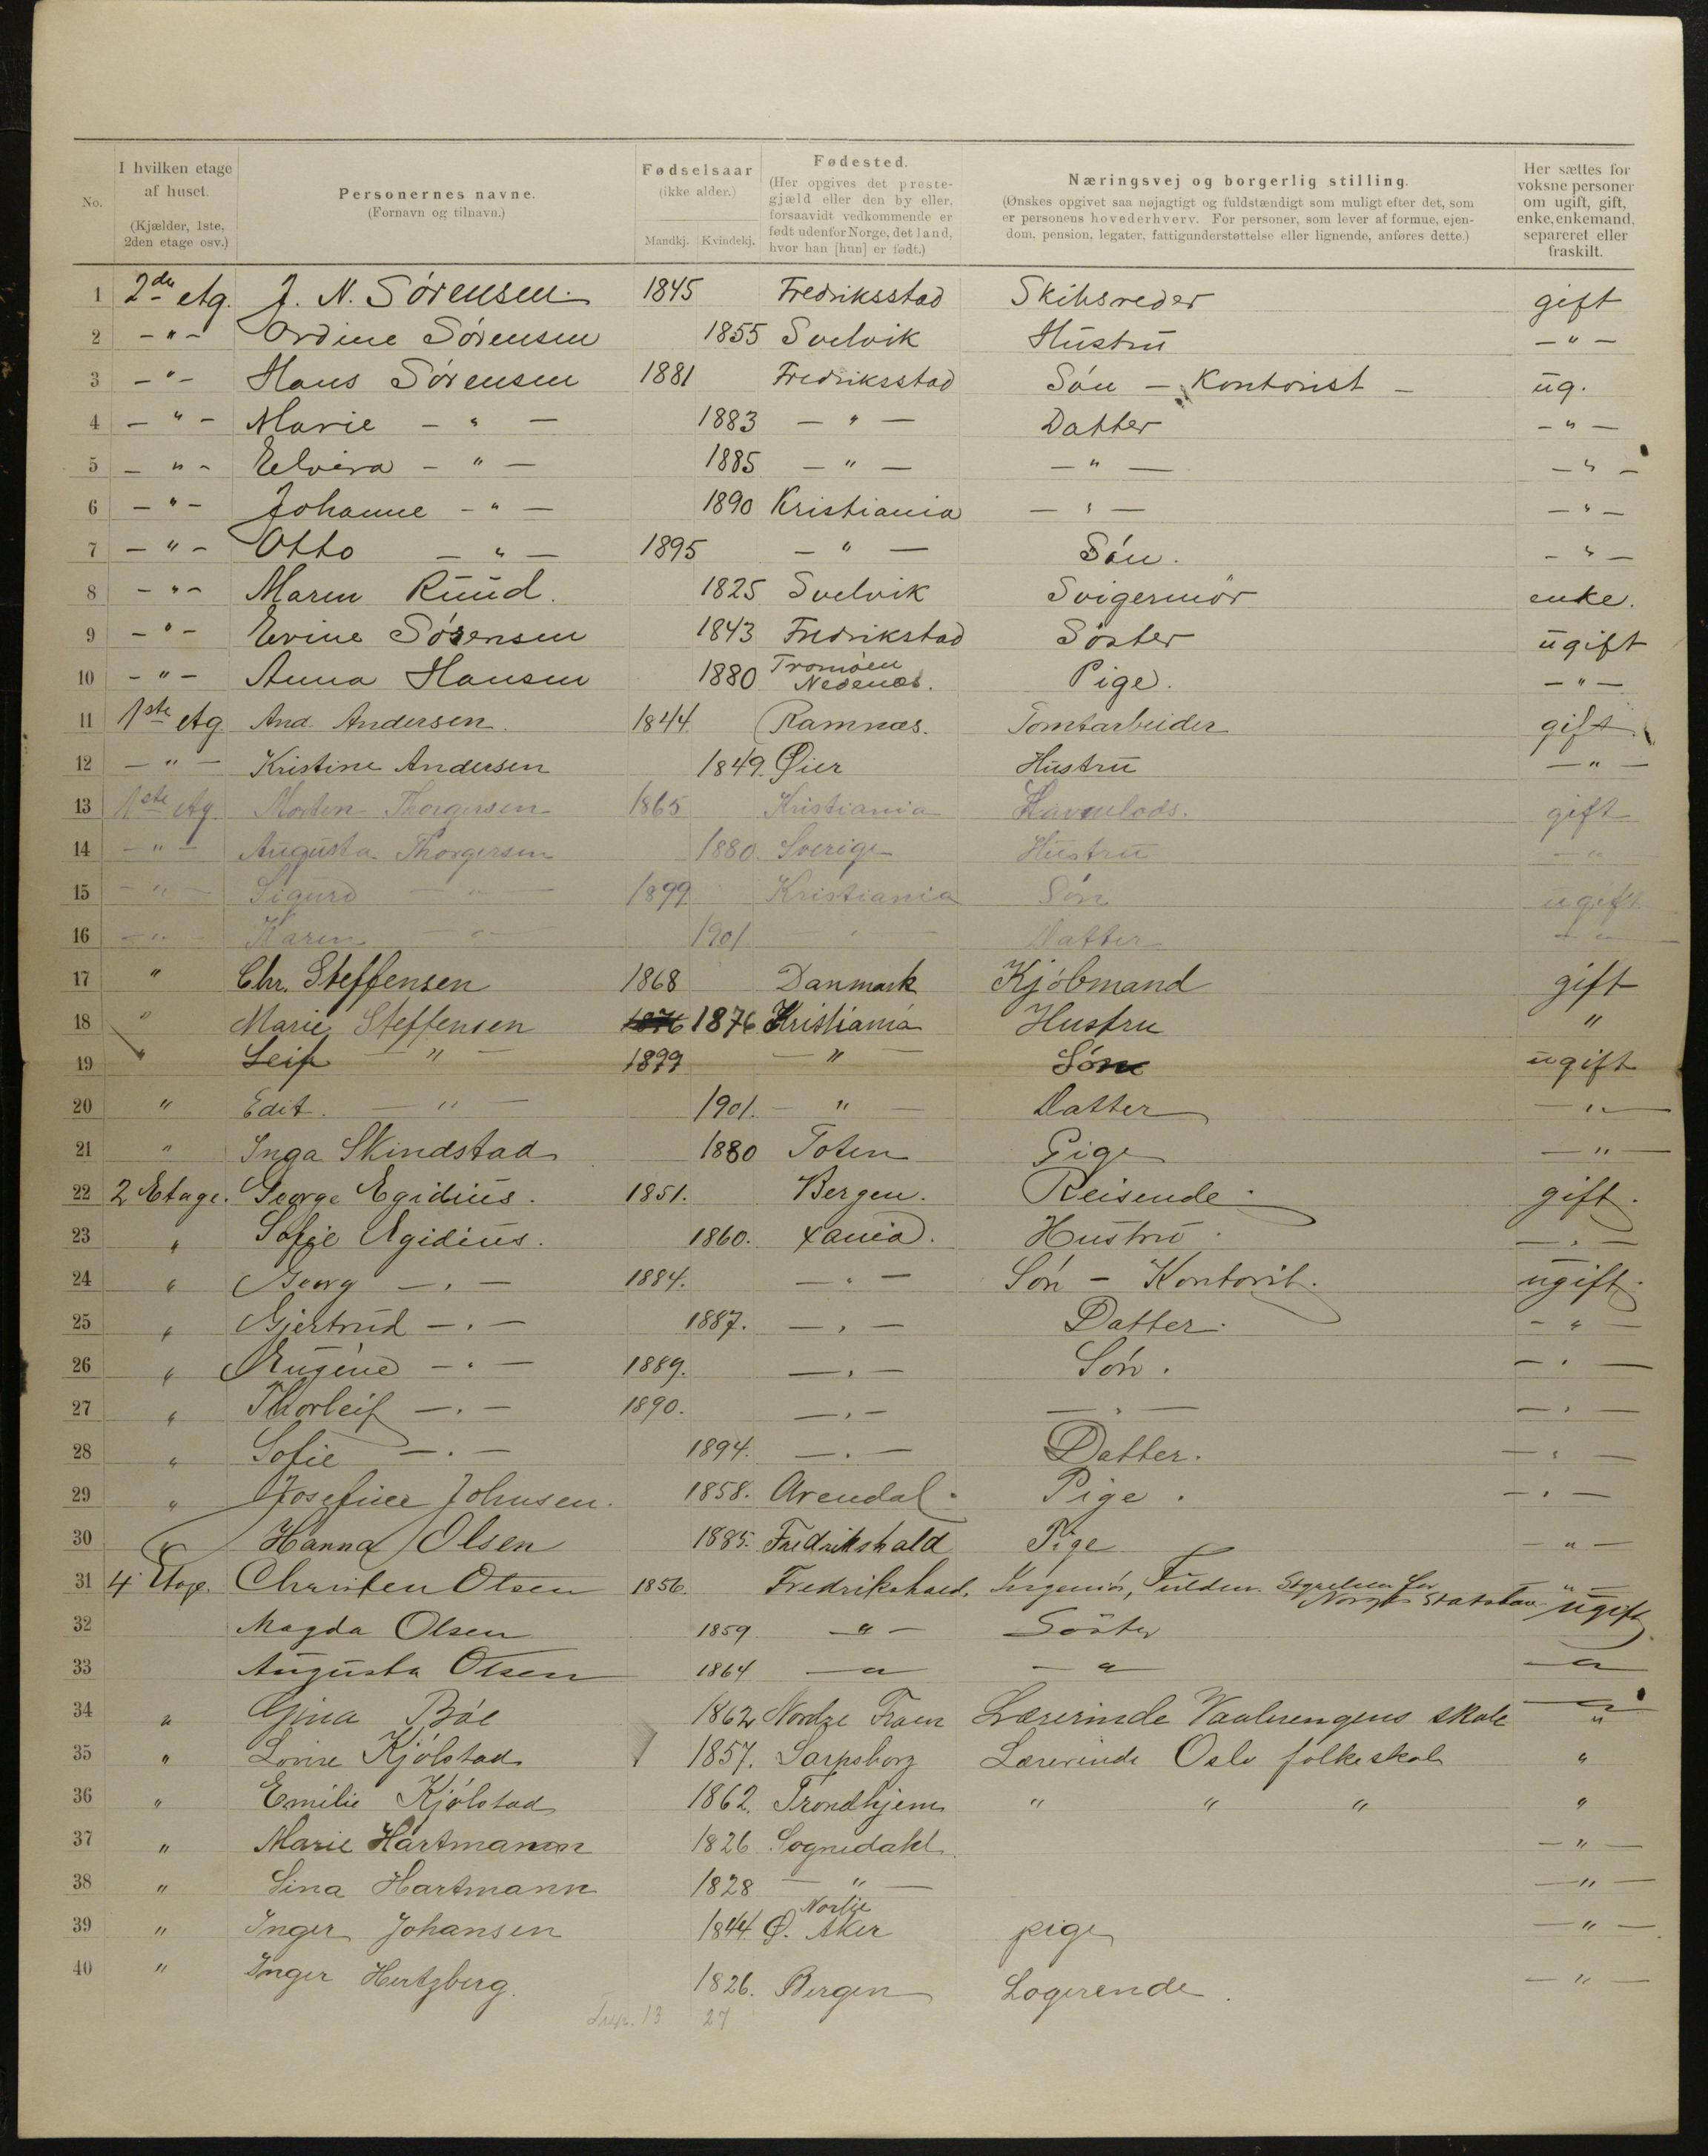 No.
I hvilken etage af huset.
(Kjælder, 1ste, 2den etage osv.)
Personernes navne.
(Fornavn og tilnavn.)
Fødselsaar
(ikke alder.)
Mandkj. Kvindekj.
Fødested.
(Her opgives det preste-
gjæld eller den by eller,
forsaavidt vedkommende er
født udenfor Norge, det land,
hvor han [hun] er født.)
Næringsvej og borgerlig stilling.
(Ønskes opgivet saa nøjagtigt og fuldstændigt som muligt efter det, som
er personens hovederhverv. For personer, som lever af formue, ejen-
dom, pension, legater, fattigunderstøttelse eller lignende, anføres dette.)
Her sættes for
voksne personer
om ugift, gift,
enke, enkemand,
separeret eller
fraskilt.
1 2den Etg. J. N. Sørensen. 1845 Fredriksstad Skibsreder gift
2 -"- Ordine Sørensen 1855 Svelvik Hustru -"-
3 -"- Hans Sørensen 1881 Fredriksstad Søn - Kontorist - ug.
4 -"- Marie -"- 1883 -"- Datter -"-
5 -"- Elvira -"- 1885 -"- -"- -"-
6 -"- Johanne -"- 1890 Kristiania -"- -"-
7 -"- Otto -"- 1895 -"- Søn. -"-
8 -"- Maren Ruud. 1825 Svelvik Svigermor enke.
9 -"- Evine Sørensen 1843 Fredrikstad Søster ugift
10 -"- Anna Hansen 1880 Tromøen Nedenæs. Pige. -"-
11 1ste Etg. And. Andersen. 1844. Ramnæs. Tomtarbeider gift.
12 -"- Kristine Andersen 1849. Øier Hustru -"-
13 1ste Etg. Morten Thorgersen 1865 Kristiania Havnelods. gift
14 -"- Augusta Thorgersen 1880 Sverige Hustru -"-
15 -"- Sigurd -"- 1899 Kristiania Søn ugift
16 -"- Karen -"- 1901 -"- Datter -"-
17 " Chr. Steffensen 1868 Danmark Kjøbmand gift
18 " Marie Steffensen 1876 1876 Kristiania Hustru "
19 " Leif -"- 1899 -"- Søn ugift
20 " Edit. -"- 1901. -"- Datter -"-
21 " Inga Skindstad 1880 Toten Pige -"-
22 2 Etage. George Egidius. 1851. Bergen. Reisende. gift.
23 " Sofie Egidius. 1860. Xania. Hustru. -"-
24 " Georg -"- 1884. -"- Søn - Kontorist. ugift.
25 " Gjertrud -"- 1887. -"- Datter. -"-
26 " Eugéne -"- 1889. -"- Søn. -"-
27 " Thorleif -"- 1890. -"- -"- -"-
28 " Sofie -"- 1894. -"- Datter. -"-
29 " Josefine Johnsen. 1858. Arendal. Pige. -"-
30 " Hanna Olsen 1885. Fredrikshald Pige -"-
31 4 Etage. Christen Olsen 1856. Fredrikshald. Ingeniør, Styrelsen for Norges Statsban -"- ugift.
32 Magda Olsen 1859 -"- Söster
33 Augusta Olsen 1864 -"- -"- -"-
34 " Gina Bøe 1862 Nordre Lærerinde Vaalerengens skole -"-
35 " Lovise Kjølstad 1857. Sarpsborg Lærerinde Oslo folkeskole "
36 " Emilie Kjølstad 1862. Trondhjem " " " "
37 " Marie Hartmann 1826 Sognedahl. -"-
38 " Lina Hartmann 1828 -"- -"-
39 " Inger Johansen 1844. Ø. Aker pige -"-
40 " Inger Hertzberg. 1826. Bergen Logerende. -"-
13 27